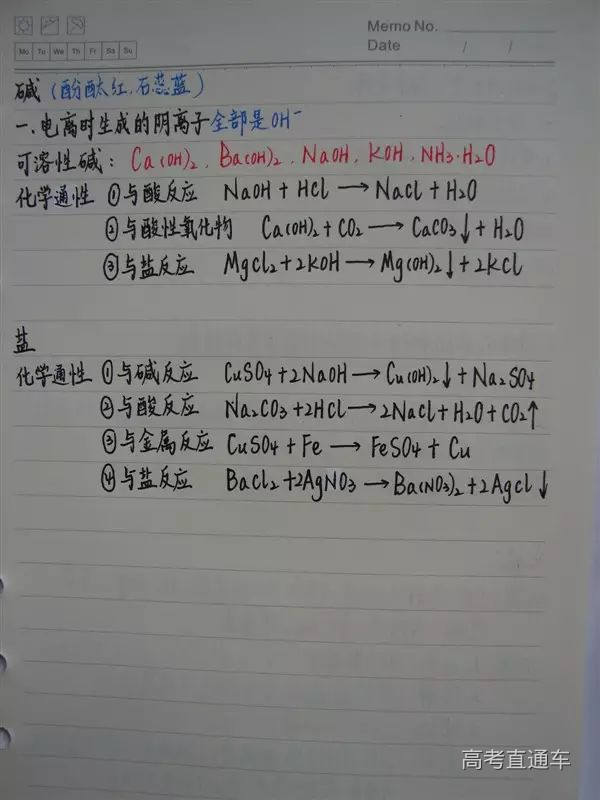 Memo No.
Date / /
Mo Tu We Th Fr Sa Su
碱（酚酞红,石蕊蓝）
一、电离时生成的阴离子全部是OH⁻
可溶性碱：Ca(OH)₂、Ba(OH)₂、NaOH、KOH、NH₃·H₂O
化学通性 ①与酸反应 NaOH + HCl ⟶ NaCl + H₂O
②与酸性氧化物 Ca(OH)₂ + CO₂ ⟶ CaCO₃↓ + H₂O
③与盐反应 MgCl₂ + 2KOH ⟶ Mg(OH)₂↓ + 2KCl
盐
化学通性 ①与碱反应 CuSO₄ + 2NaOH ⟶ Cu(OH)₂↓ + Na₂SO₄
②与酸反应 Na₂CO₃ + 2HCl ⟶ 2NaCl + H₂O + CO₂↑
③与金属反应 CuSO₄ + Fe ⟶ FeSO₄ + Cu
④与盐反应 BaCl₂ + 2AgNO₃ ⟶ Ba(NO₃)₂ + 2AgCl↓
高考直通车